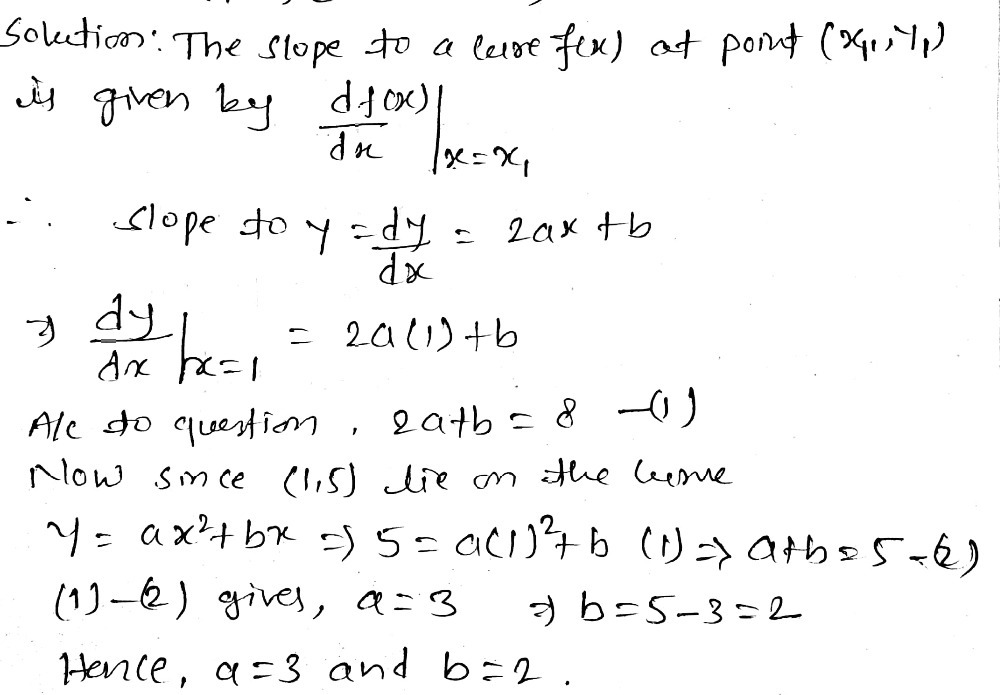 Solution: The slope to a curve f(x) at point (x₁, y₁)
is given by df(x)/dx |x=x₁
∴ slope to y = dy/dx = 2ax + b
⇒ dy/dx |x=1 = 2a(1) + b
A/c to question, 2a+b = 8 —(1)
Now since (1,5) lie on the curve
y = ax² + bx ⇒ 5 = a(1)² + b (1) ⇒ a+b = 5 -(2)
(1) - (2) gives, a = 3 ⇒ b = 5-3 = 2
Hence, a = 3 and b = 2.